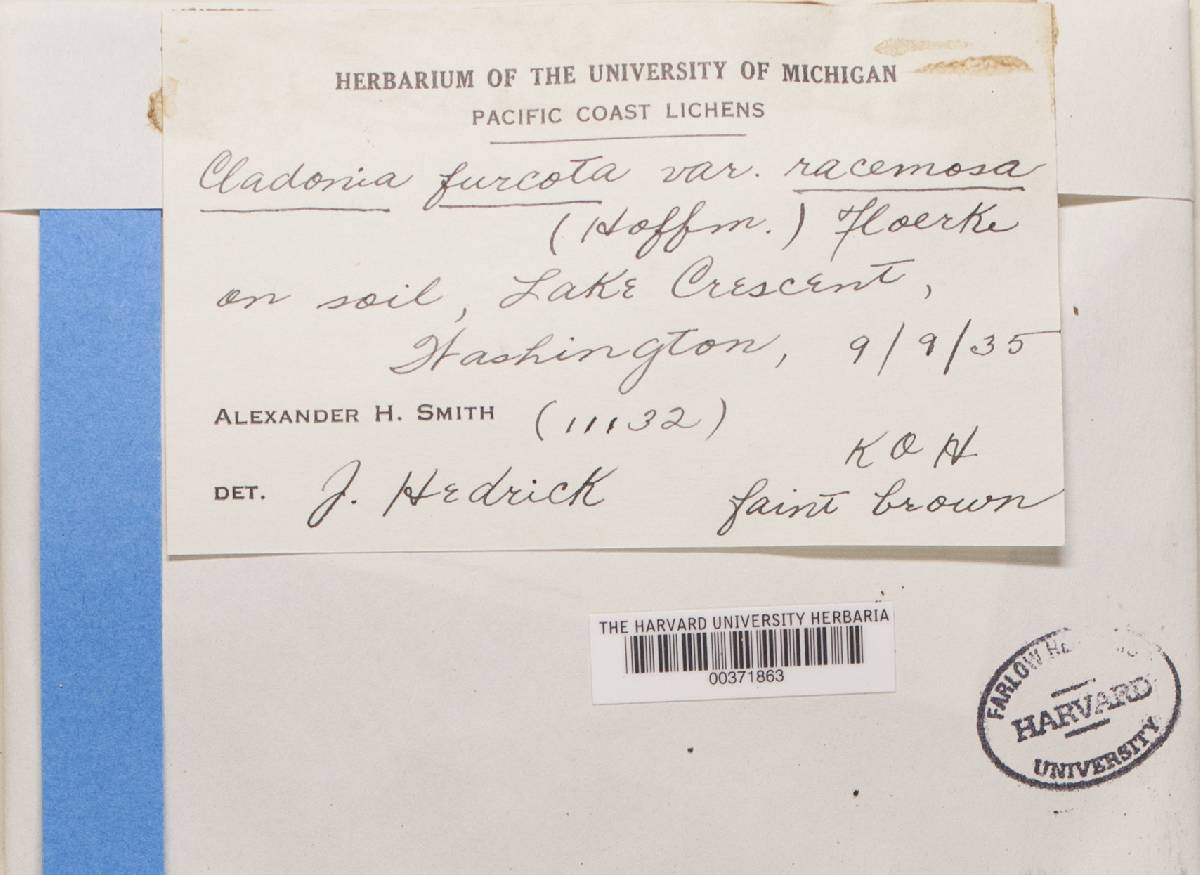 HERBARIUM OF THE UNIVERSITY OF MICHIGAN
PACIFIC COAST LICHENS
Cladonia furcota var. racemosa
(Hoffm.) Floerke
on soil, Lake Crescent,
Washington, 9/9/35
ALEXANDER H. SMITH (11132)
KOH
DET. J. Hedrick faint brown
THE HARVARD UNIVERSITY HERBARIA
00371863
FARLOW
HARVARD
UNIVERSITY